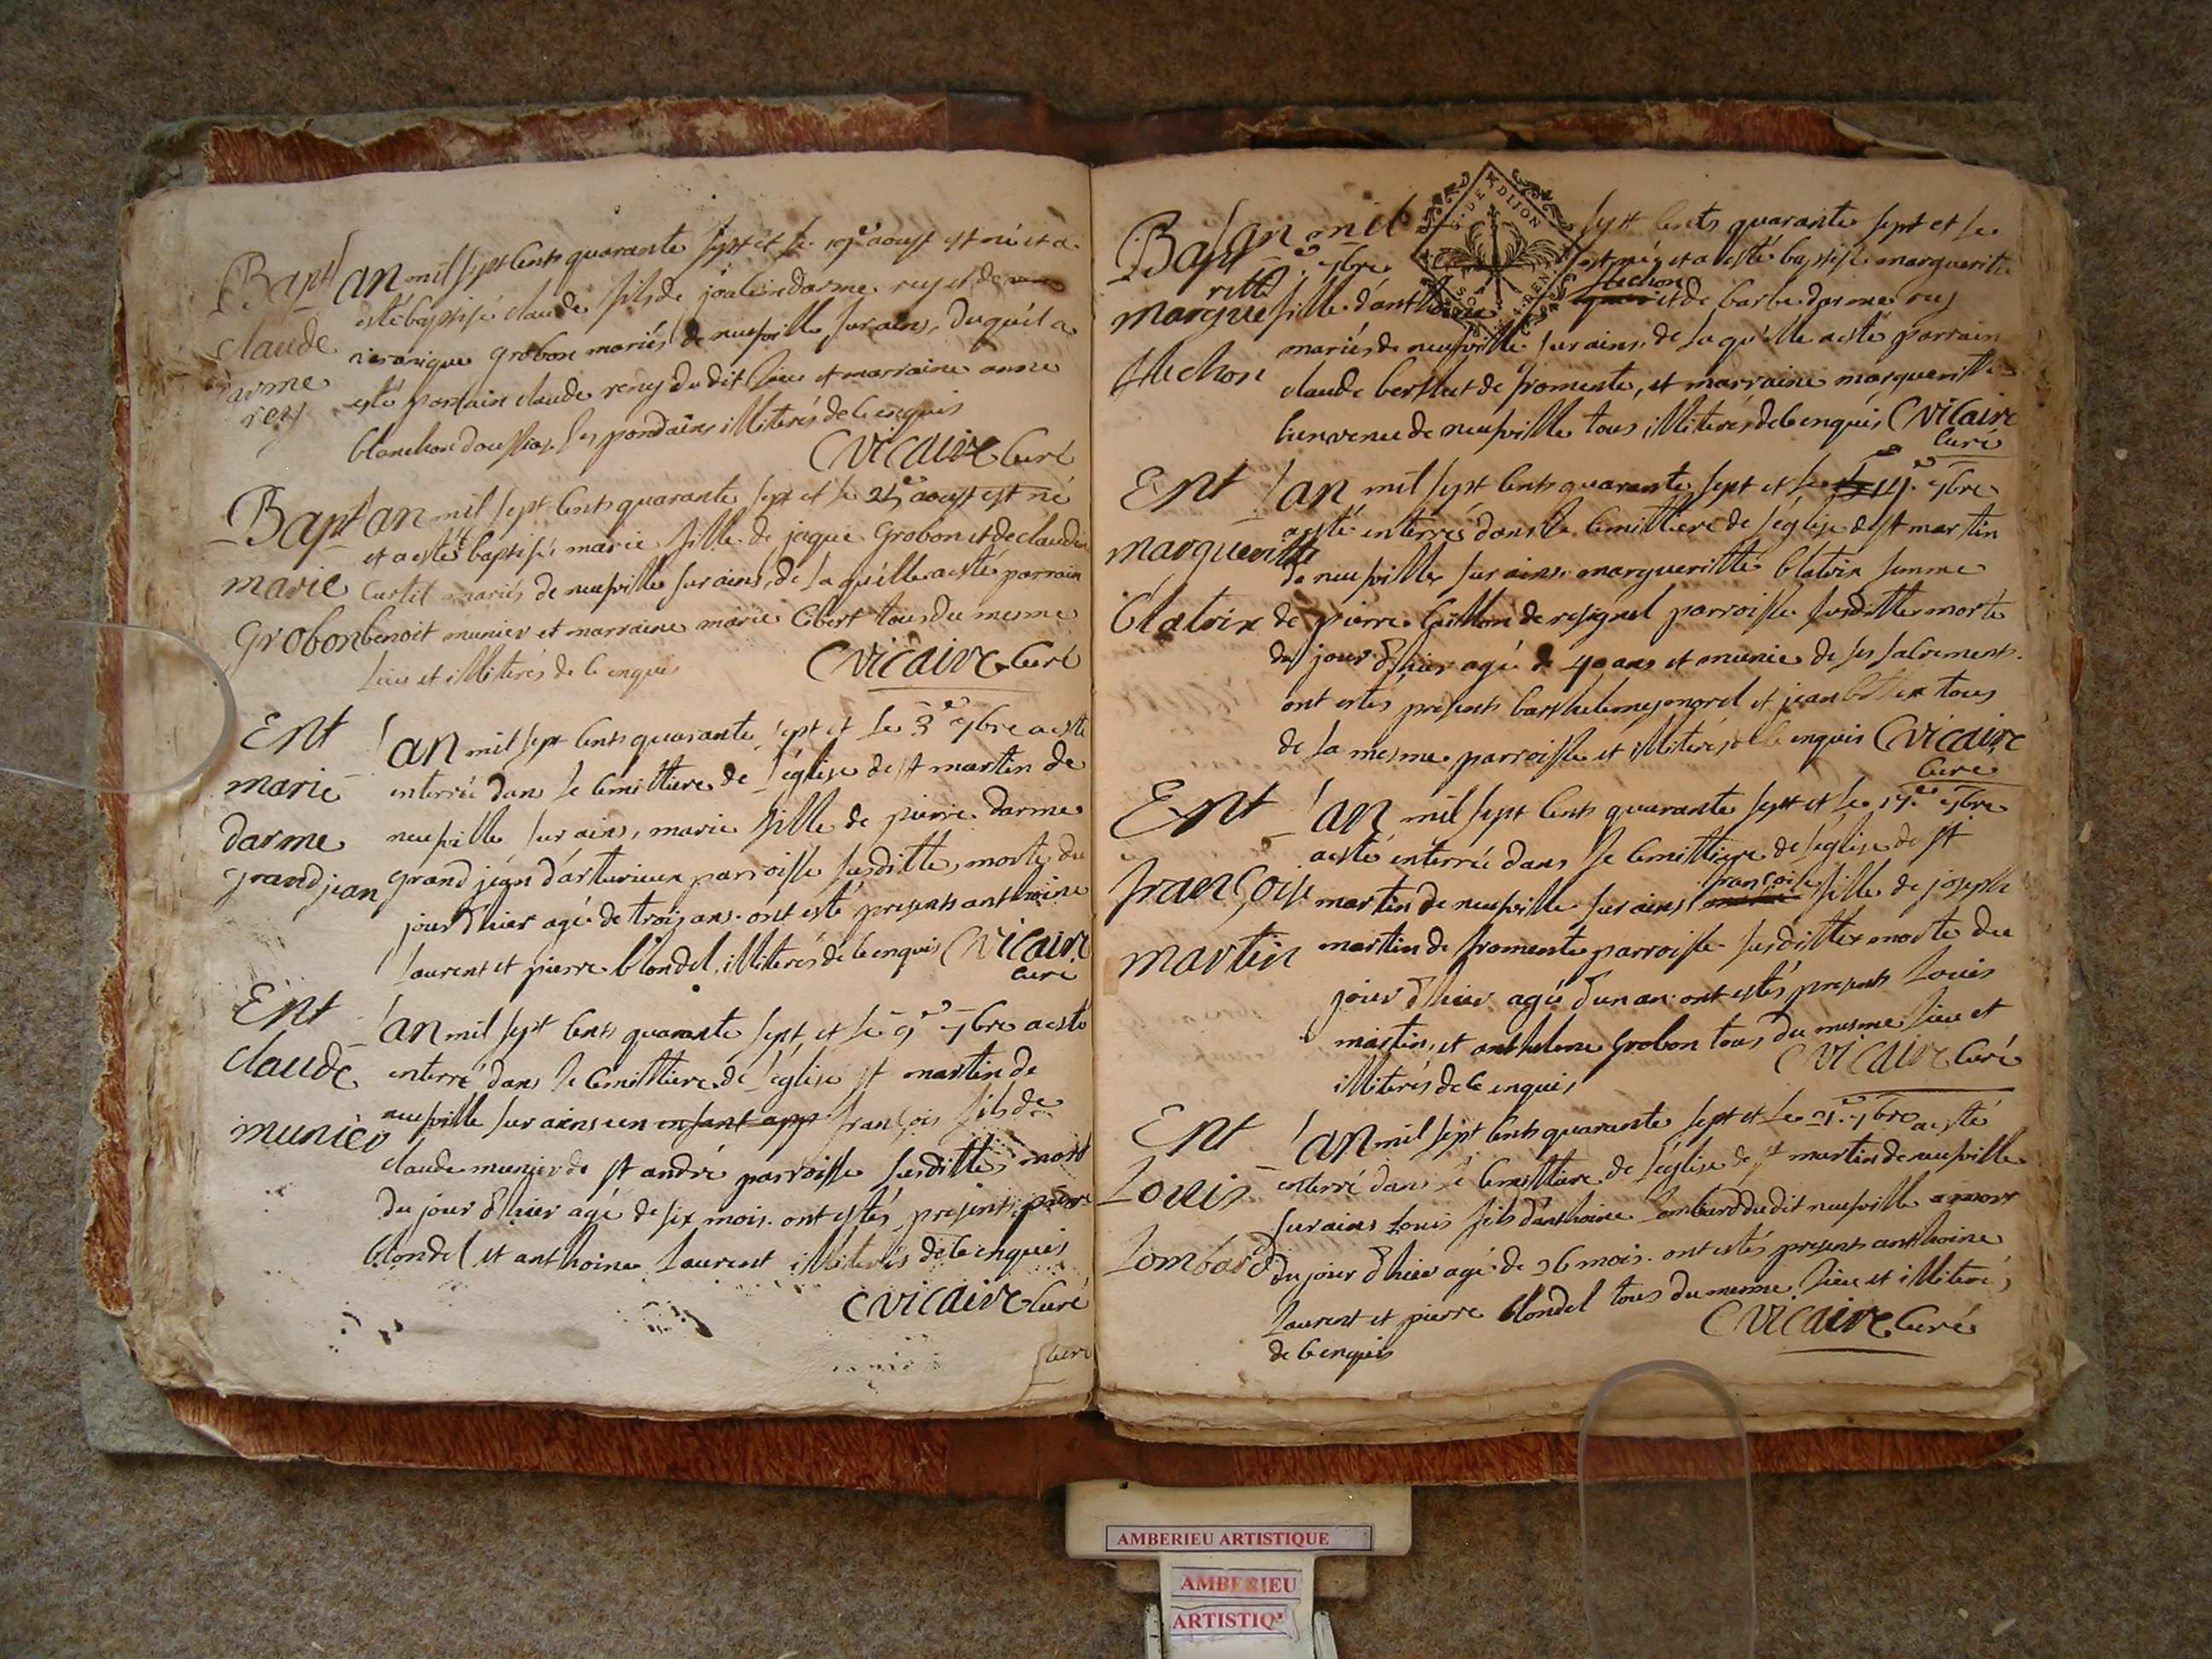 Bapt
claude
darme
rey
l'an mil sept cents quarante sept et le 19e aoust est né et a
esté baptisé claude fils de joachin darme rey et de
grobon mariés de neufville sur ains, duquel a
esté parrain claude reny du dit lieu et marraine anne
blanchon
illiterés de ce enquis
C Vicaire Curé
Bapt
marie
grobon
l'an mil sept cents quarante sept et le 25e aoust est né
et a estéé baptisée marie fille de jaque Grobon et de claudine
Curtil mariés de neufville sur ains, de laquelle a esté parrain
benoit munier et marraine marie Cibert tous du mesme
lieu et illiterés de ce enquis
C Vicaire Curé
Ent
marie
darme
grand jean
l'an mil sept cents quarante sept et le 3e 7bre a esté
enterrée dans le cemittiere de l'église de st martin de
neufville sur ains, marie fille de pierre darme
grand jean d'arturieux parroisse susditte, morte du
jour d'hier agée de trois ans. ont esté presents anthoine
laurent et pierre blondel, illiterés de ce enquis C Vicaire
curé
Ent
claude
munier
l'an mil sept cents quarante sept et le 9e 7bre a esté
enterré dans le cemittiere de l'église st martin de
neufville sur ains un enfant app françois fils de
claude munier de st andré parroisse susditte, mort
du jour d'hier agé de six mois. ont estés presents pierre
blondel et anthoine Laurent illiterés de ce enquis
C Vicaire Curé
Curé
Bapt
margue
ritte
l'an mil sept cents quarante sept et le
7bre est née et a esté baptisé margueritte
fille d'anthoine et de barbe darme rey
mariés de neufville sur ains, de laquelle a esté parrain
claude berthet de fromente, et marraine margueritte
bienvenue de neufville tous illiterés de ce enquis C Vicaire
Curé
G. DE DIJON
Ent
margueritte
Clatrix
l'an mil sept cents quarante sept et le 14e 7bre
a esté enterrée dans le cemittiere de l'église de st martin
de neufville sur ains margueritte Clatrix femme
de pierre de resignel parroisse susditte morte
du jour d'hier agée de 40 ans et munie de ses sacrements.
ont estés présents barthelemy morel et jean tous
de la mesme parroisse et illiterés de ce enquis C Vicaire
Curé
Ent
françoise
martin
l'an mil sept cents quarante sept et le 19e 7bre
a esté enterrée dans le cemittiere de l'église de st
martin de neufville sur ains françoise fille de joseph
martin de fromente parroisse susditte morte du
jour d'hier agée d'un an. ont estés presents Louis
martin, et anthelme Grobon tous du mesme lieu et
illiterés de ce enquis
C Vicaire Curé
Ent
Louis
Lombard
l'an mil sept cents quarante sept et le 21e 7bre a esté
enterré dans le cemittiere de l'église de st martin de neufville
sur ains Louis fils d'anthoine Lombard du dit neufville mort
du jour d'hier agé de 26 mois. ont estés presents anthoine
Laurent et pierre blondel tous du mesme lieu et illiterés
de ce enquis
C Vicaire Curé
AMBERIEU ARTISTIQUE
AMBERIEU
ARTISTIQ